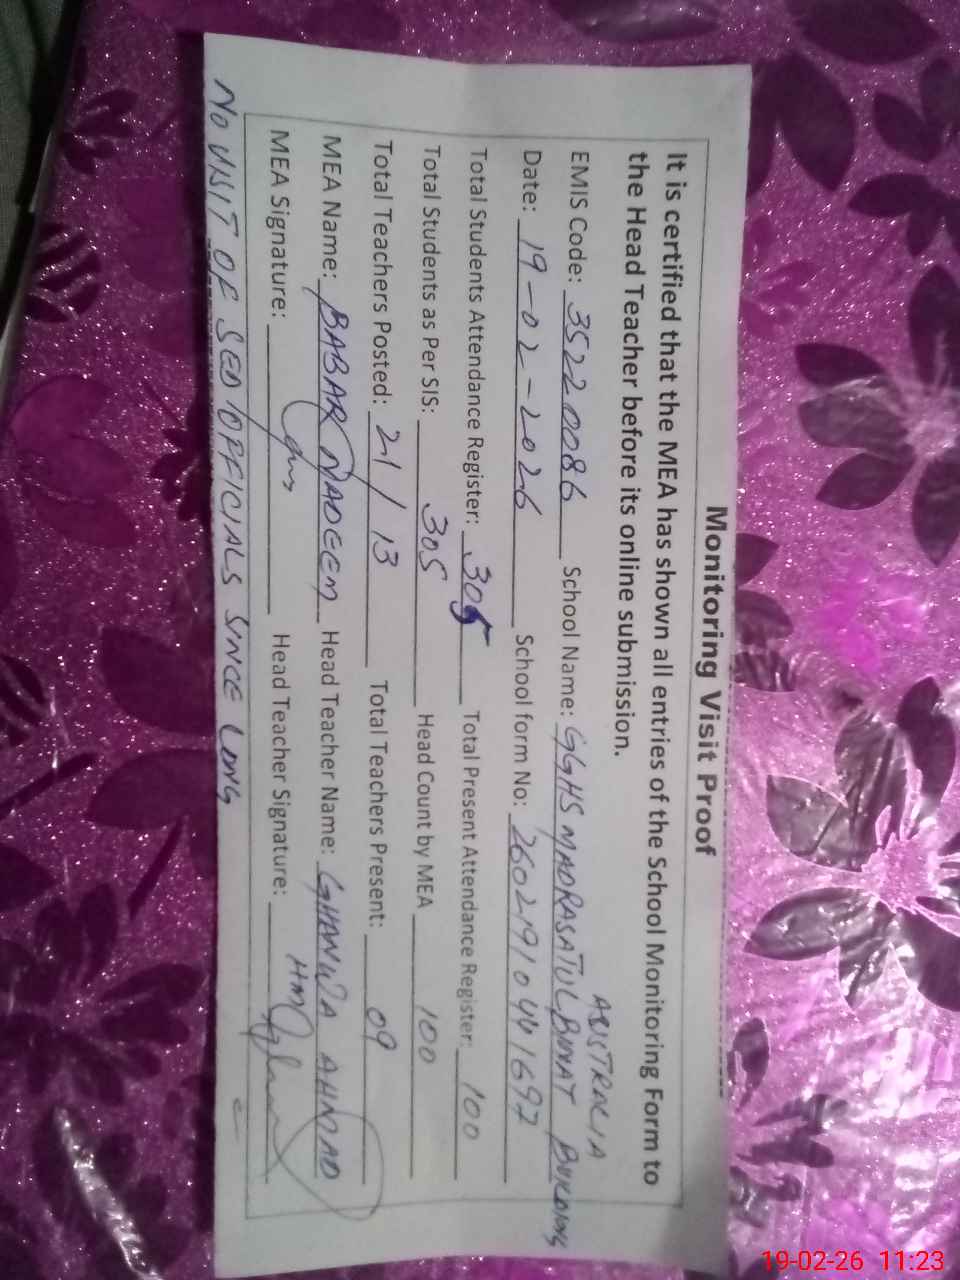 Monitoring Visit Proof
It is certified that the MEA has shown all entries of the School Monitoring Form to
the Head Teacher before its online submission.
EMIS Code: 35220086 School Name: GGHS MADRASATULBANAT AUSTRALIA BUILDING
Date: 19-02-2026 School form No: 260219104441692
Total Students Attendance Register: 305 Total Present Attendance Register: 100
Total Students as Per SIS: 305 Head Count by MEA 100
Total Teachers Posted: 21/13 Total Teachers Present: 09
MEA Name: BABAR NADEEM Head Teacher Name: GHANWA AHMAD
MEA Signature: Head Teacher Signature: HM
NO VISIT OF SED OFFICIALS SINCE LONG
19-02-26 11:23